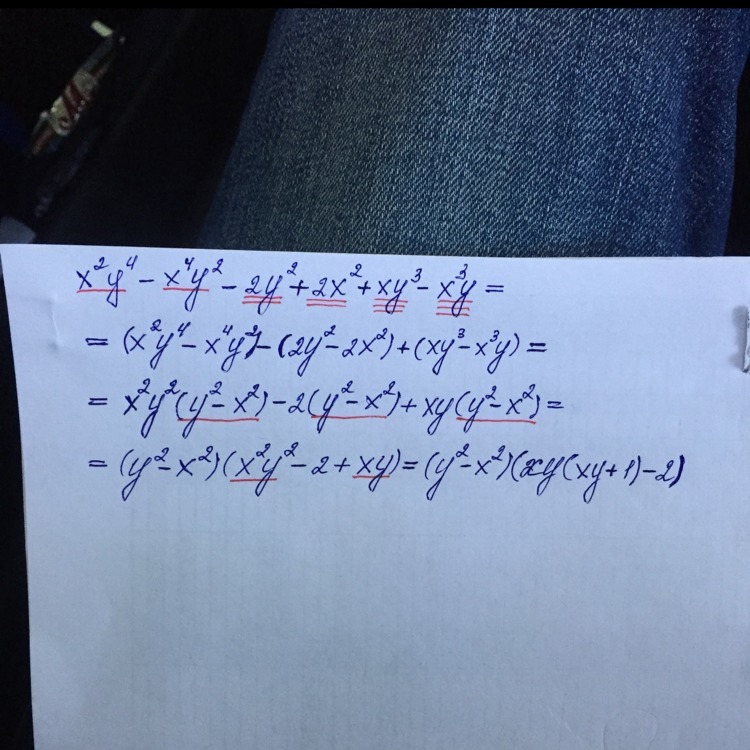 x²y⁴ − x⁴y² − 2y² + 2x² + xy³ − x³y =
= (x²y⁴ − x⁴y²) − (2y² − 2x²) + (xy³ − x³y) =
= x²y²(y² − x²) − 2(y² − x²) + xy(y² − x²) =
= (y² − x²)(x²y² − 2 + xy) = (y² − x²)(xy(xy + 1) − 2)